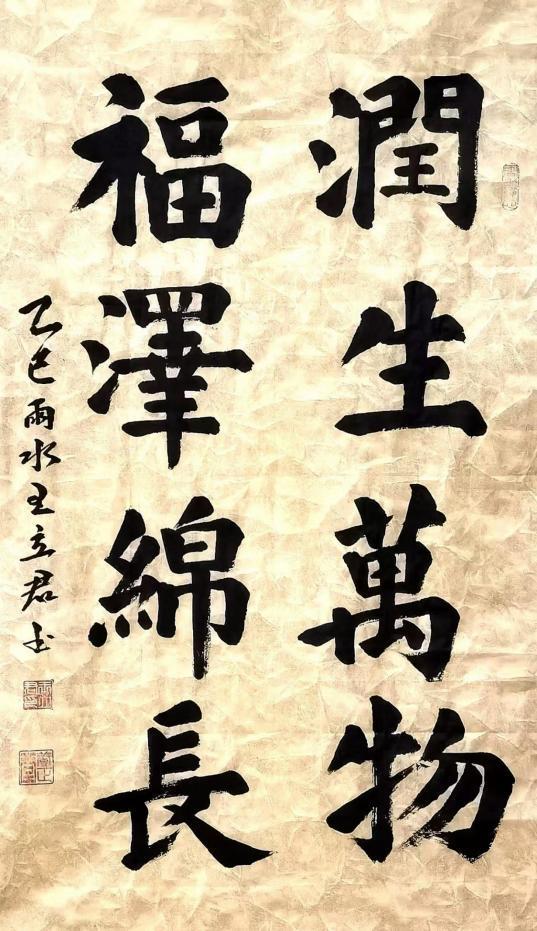 潤生萬物
福澤綿長
乙巳雨水王立君书